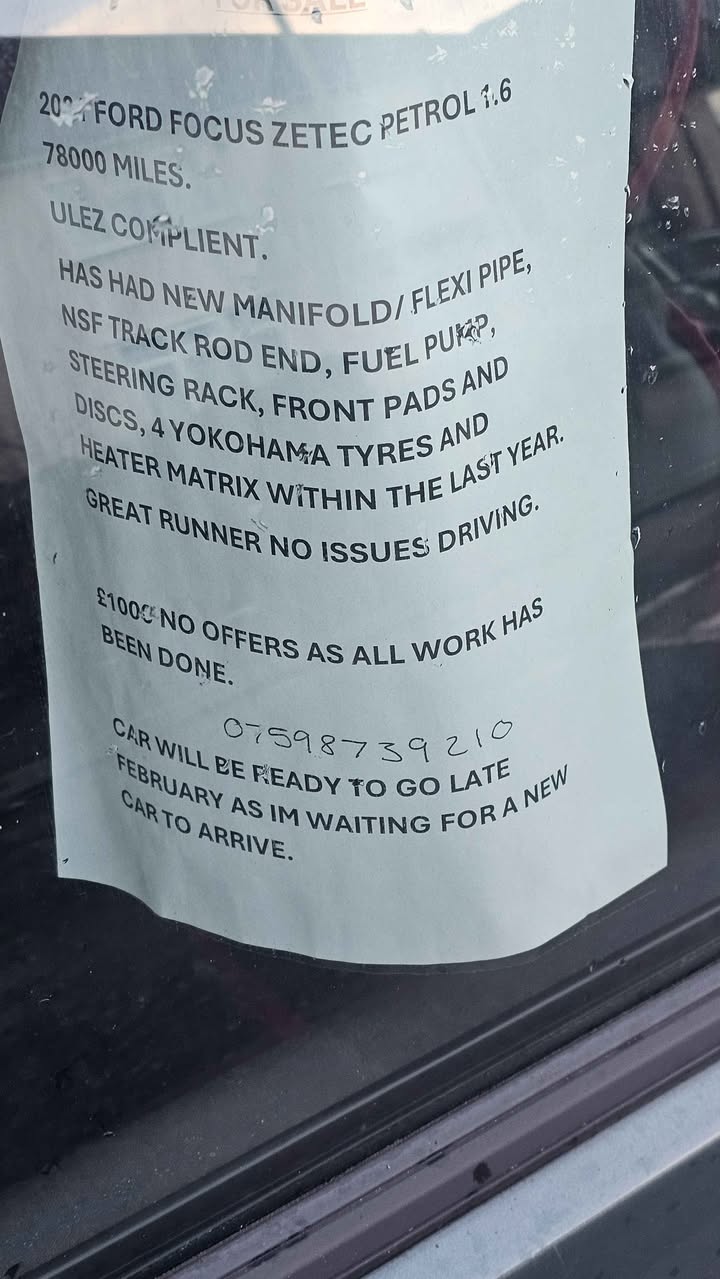 FOR SALE
FORD FOCUS ZETEC PETROL 1.6
78000 MILES.
ULEZ COMPLIENT.
HAS HAD NEW MANIFOLD/ FLEXI PIPE,
NSF TRACK ROD END, FUEL PUMP,
STEERING RACK, FRONT PADS AND
DISCS, 4 YOKOHAMA TYRES AND
HEATER MATRIX WITHIN THE LAST YEAR.
GREAT RUNNER NO ISSUES DRIVING.
£1000 NO OFFERS AS ALL WORK HAS
BEEN DONE.
07598739210
CAR WILL BE READY TO GO LATE
FEBRUARY AS IM WAITING FOR A NEW
CAR TO ARRIVE.